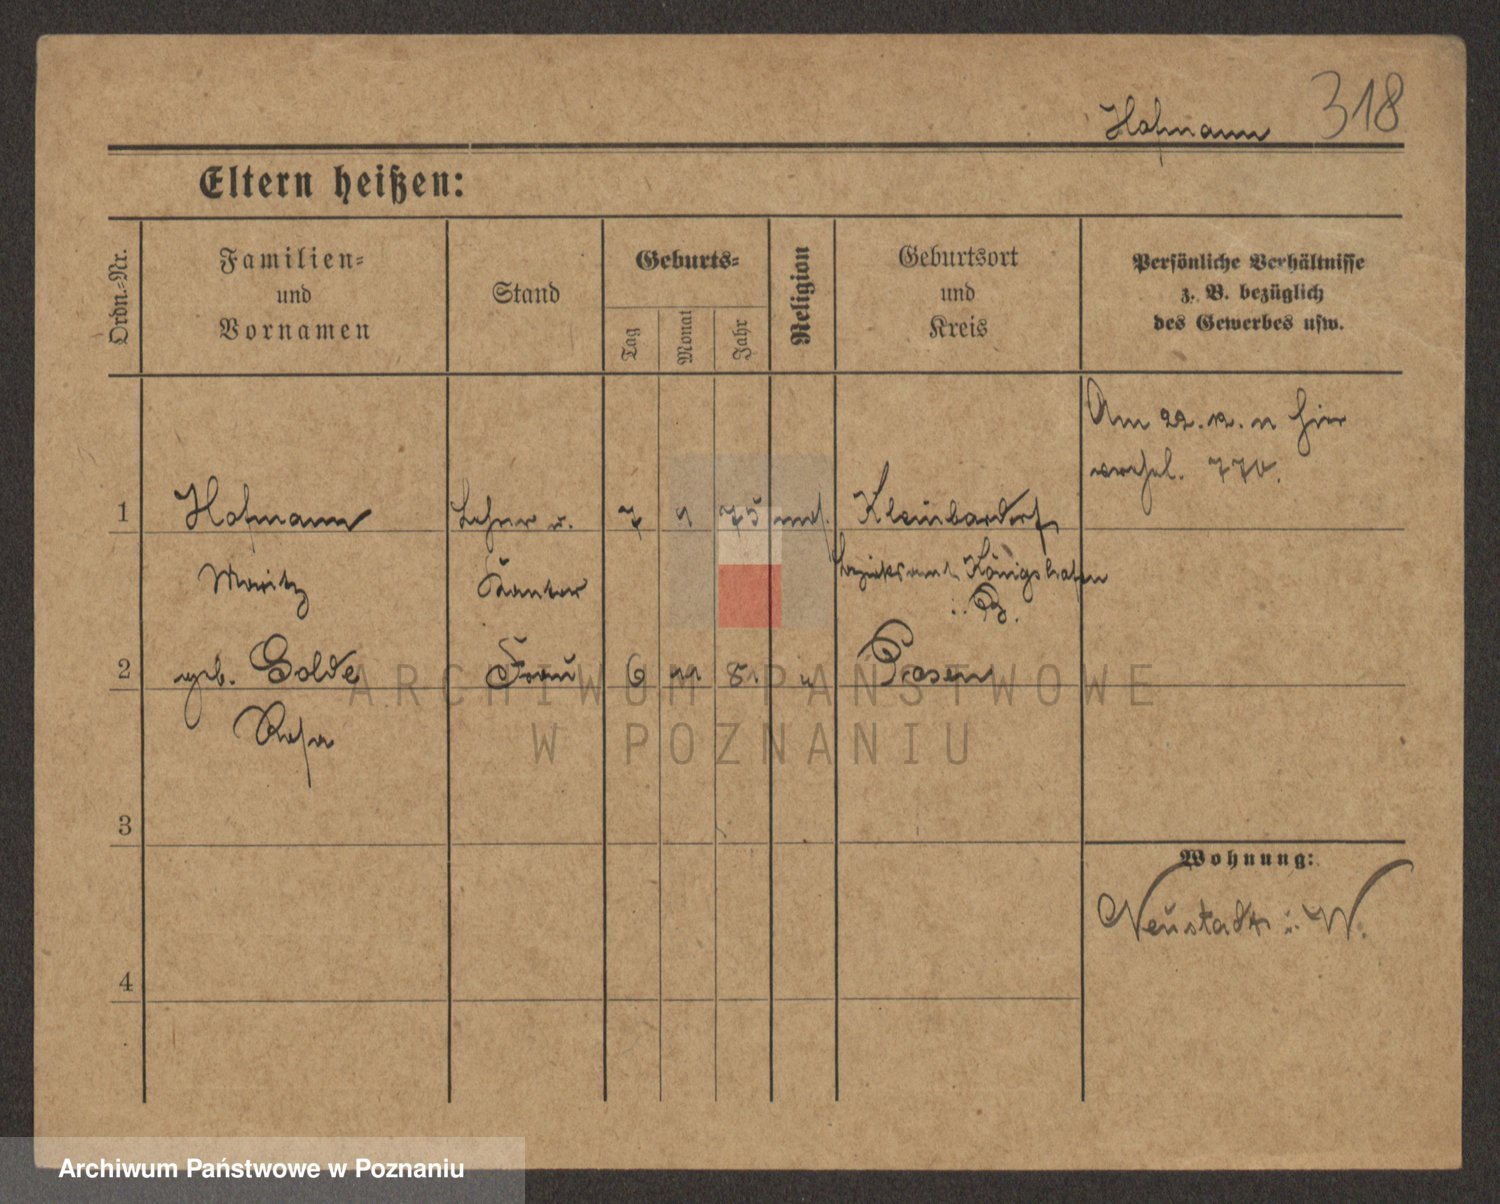 Hofmann 318
Eltern heißen:
Ordn.-Nr.
Familien-
und
Vornamen
Stand
Geburts-
Tag
Monat
Jahr
Religion
Geburtsort
und
Kreis
Persönliche Verhältnisse
z. B. bezüglich
des Gewerbes usw.
Am 22. 12. 11 hier
verehel. 770.
1 Hofmann Lehrer u. 7 9 75 mos. Kleinbardorf,
Moritz Kantor Bezirksamt Königshofen
2 geb. Golde Frau 6 11 81 " Posen
Rosa
3
4
Wohnung:
Neustadt i. W.
ARCHIWUM PAŃSTWOWE
W POZNANIU
Archiwum Państwowe w Poznaniu